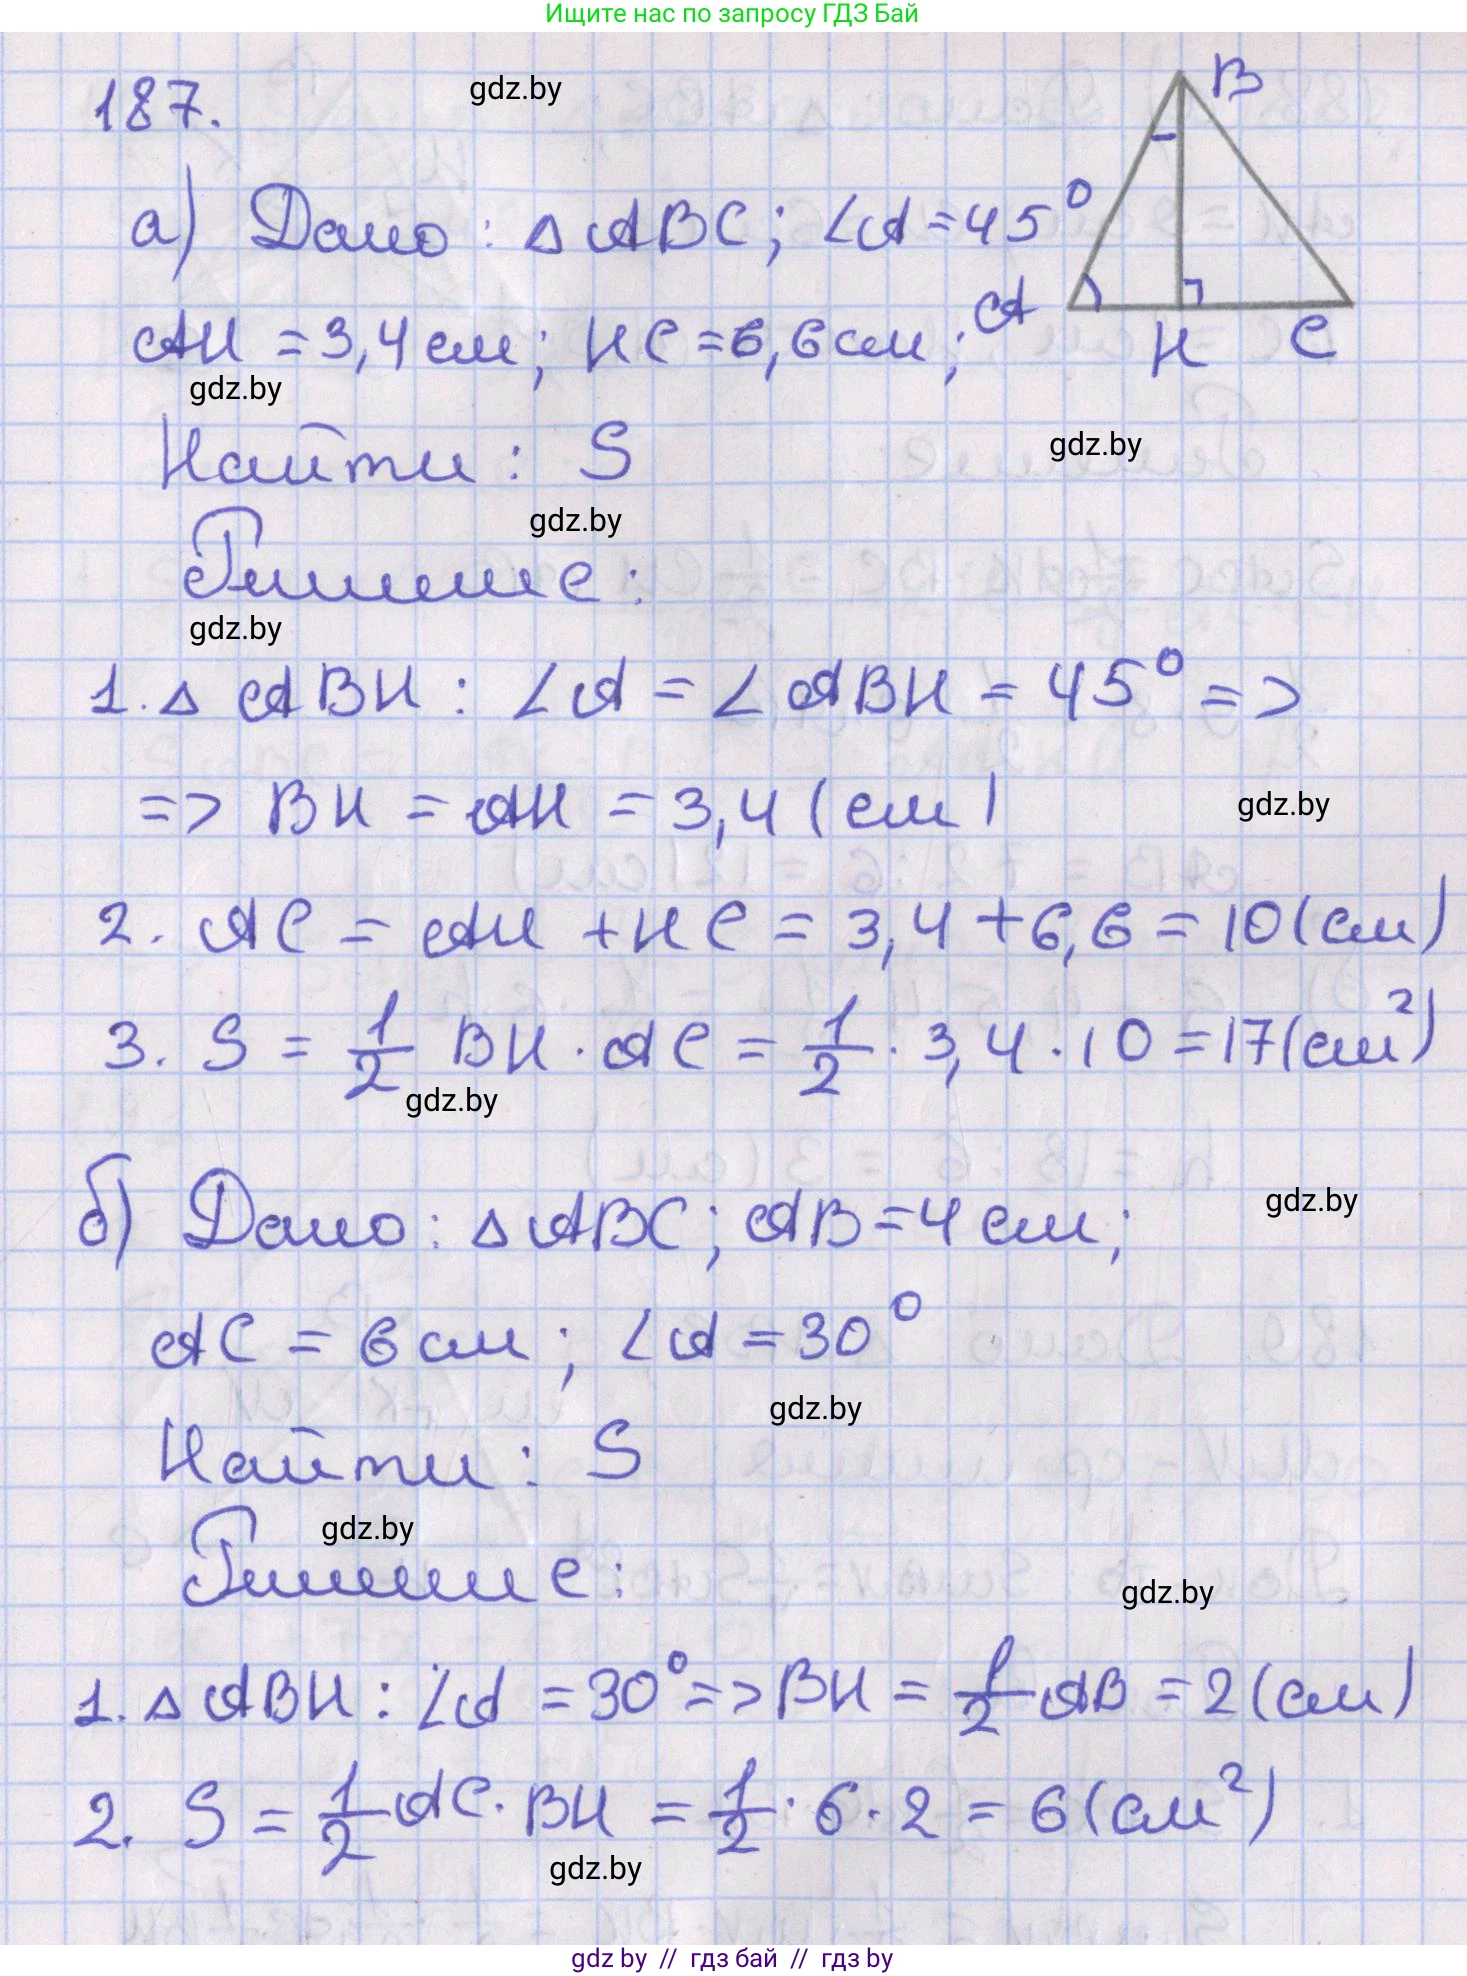 Ищите нас по запросу ГДЗ Бай
187.
gdz.by
B
а) Дано: △ABC; ∠A=45°
A
H
C
AH = 3,4 см; HC = 6,6 см;
gdz.by
Найти: S
gdz.by
gdz.by
Решение:
gdz.by
1. △ ABH: ∠A = ∠ABH = 45° =>
=> BH = AH = 3,4 (см)
gdz.by
2. AC = AH + HC = 3,4 + 6,6 = 10 (см)
3. S = 1/2 BH · AC = 1/2 · 3,4 · 10 = 17 (см²)
gdz.by
б) Дано: △ABC; AB = 4 см;
gdz.by
AC = 6 см; ∠A = 30°
gdz.by
Найти: S
gdz.by
Решение:
gdz.by
1. △ ABH: ∠A = 30° => BH = 1/2 AB = 2 (см)
2. S = 1/2 AC · BH = 1/2 · 6 · 2 = 6 (см²)
gdz.by
gdz.by // гдз бай // гдз by